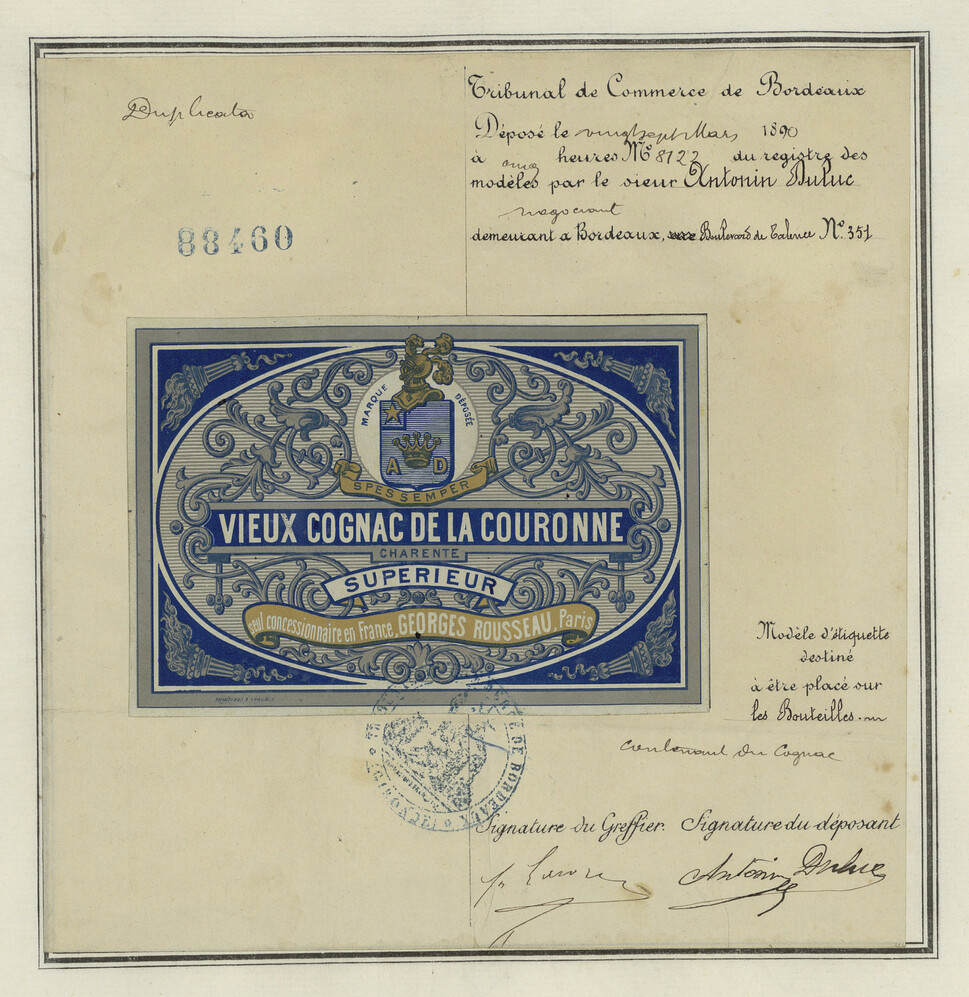 Duplicata
88460
Tribunal de Commerce de Bordeaux
Déposé le vingt sept Mars 1890
à onze heures N° 8122 du registre des
modèles par le sieur Antonin Duluc
négociant
demeurant a Bordeaux, rue Boulevard de Talence N° 351
MARQUE DÉPOSÉE
A D
SPES SEMPER
VIEUX COGNAC DE LA COURONNE
CHARENTE
SUPERIEUR
Seul concessionnaire en France, GEORGES ROUSSEAU, Paris
Modèle d'étiquette
destiné
à être placé sur
les Bouteilles
contenant du Cognac
DE BORDEAUX
(GIRONDE)
Signature du Greffier. Signature du déposant
Antonin Duluc